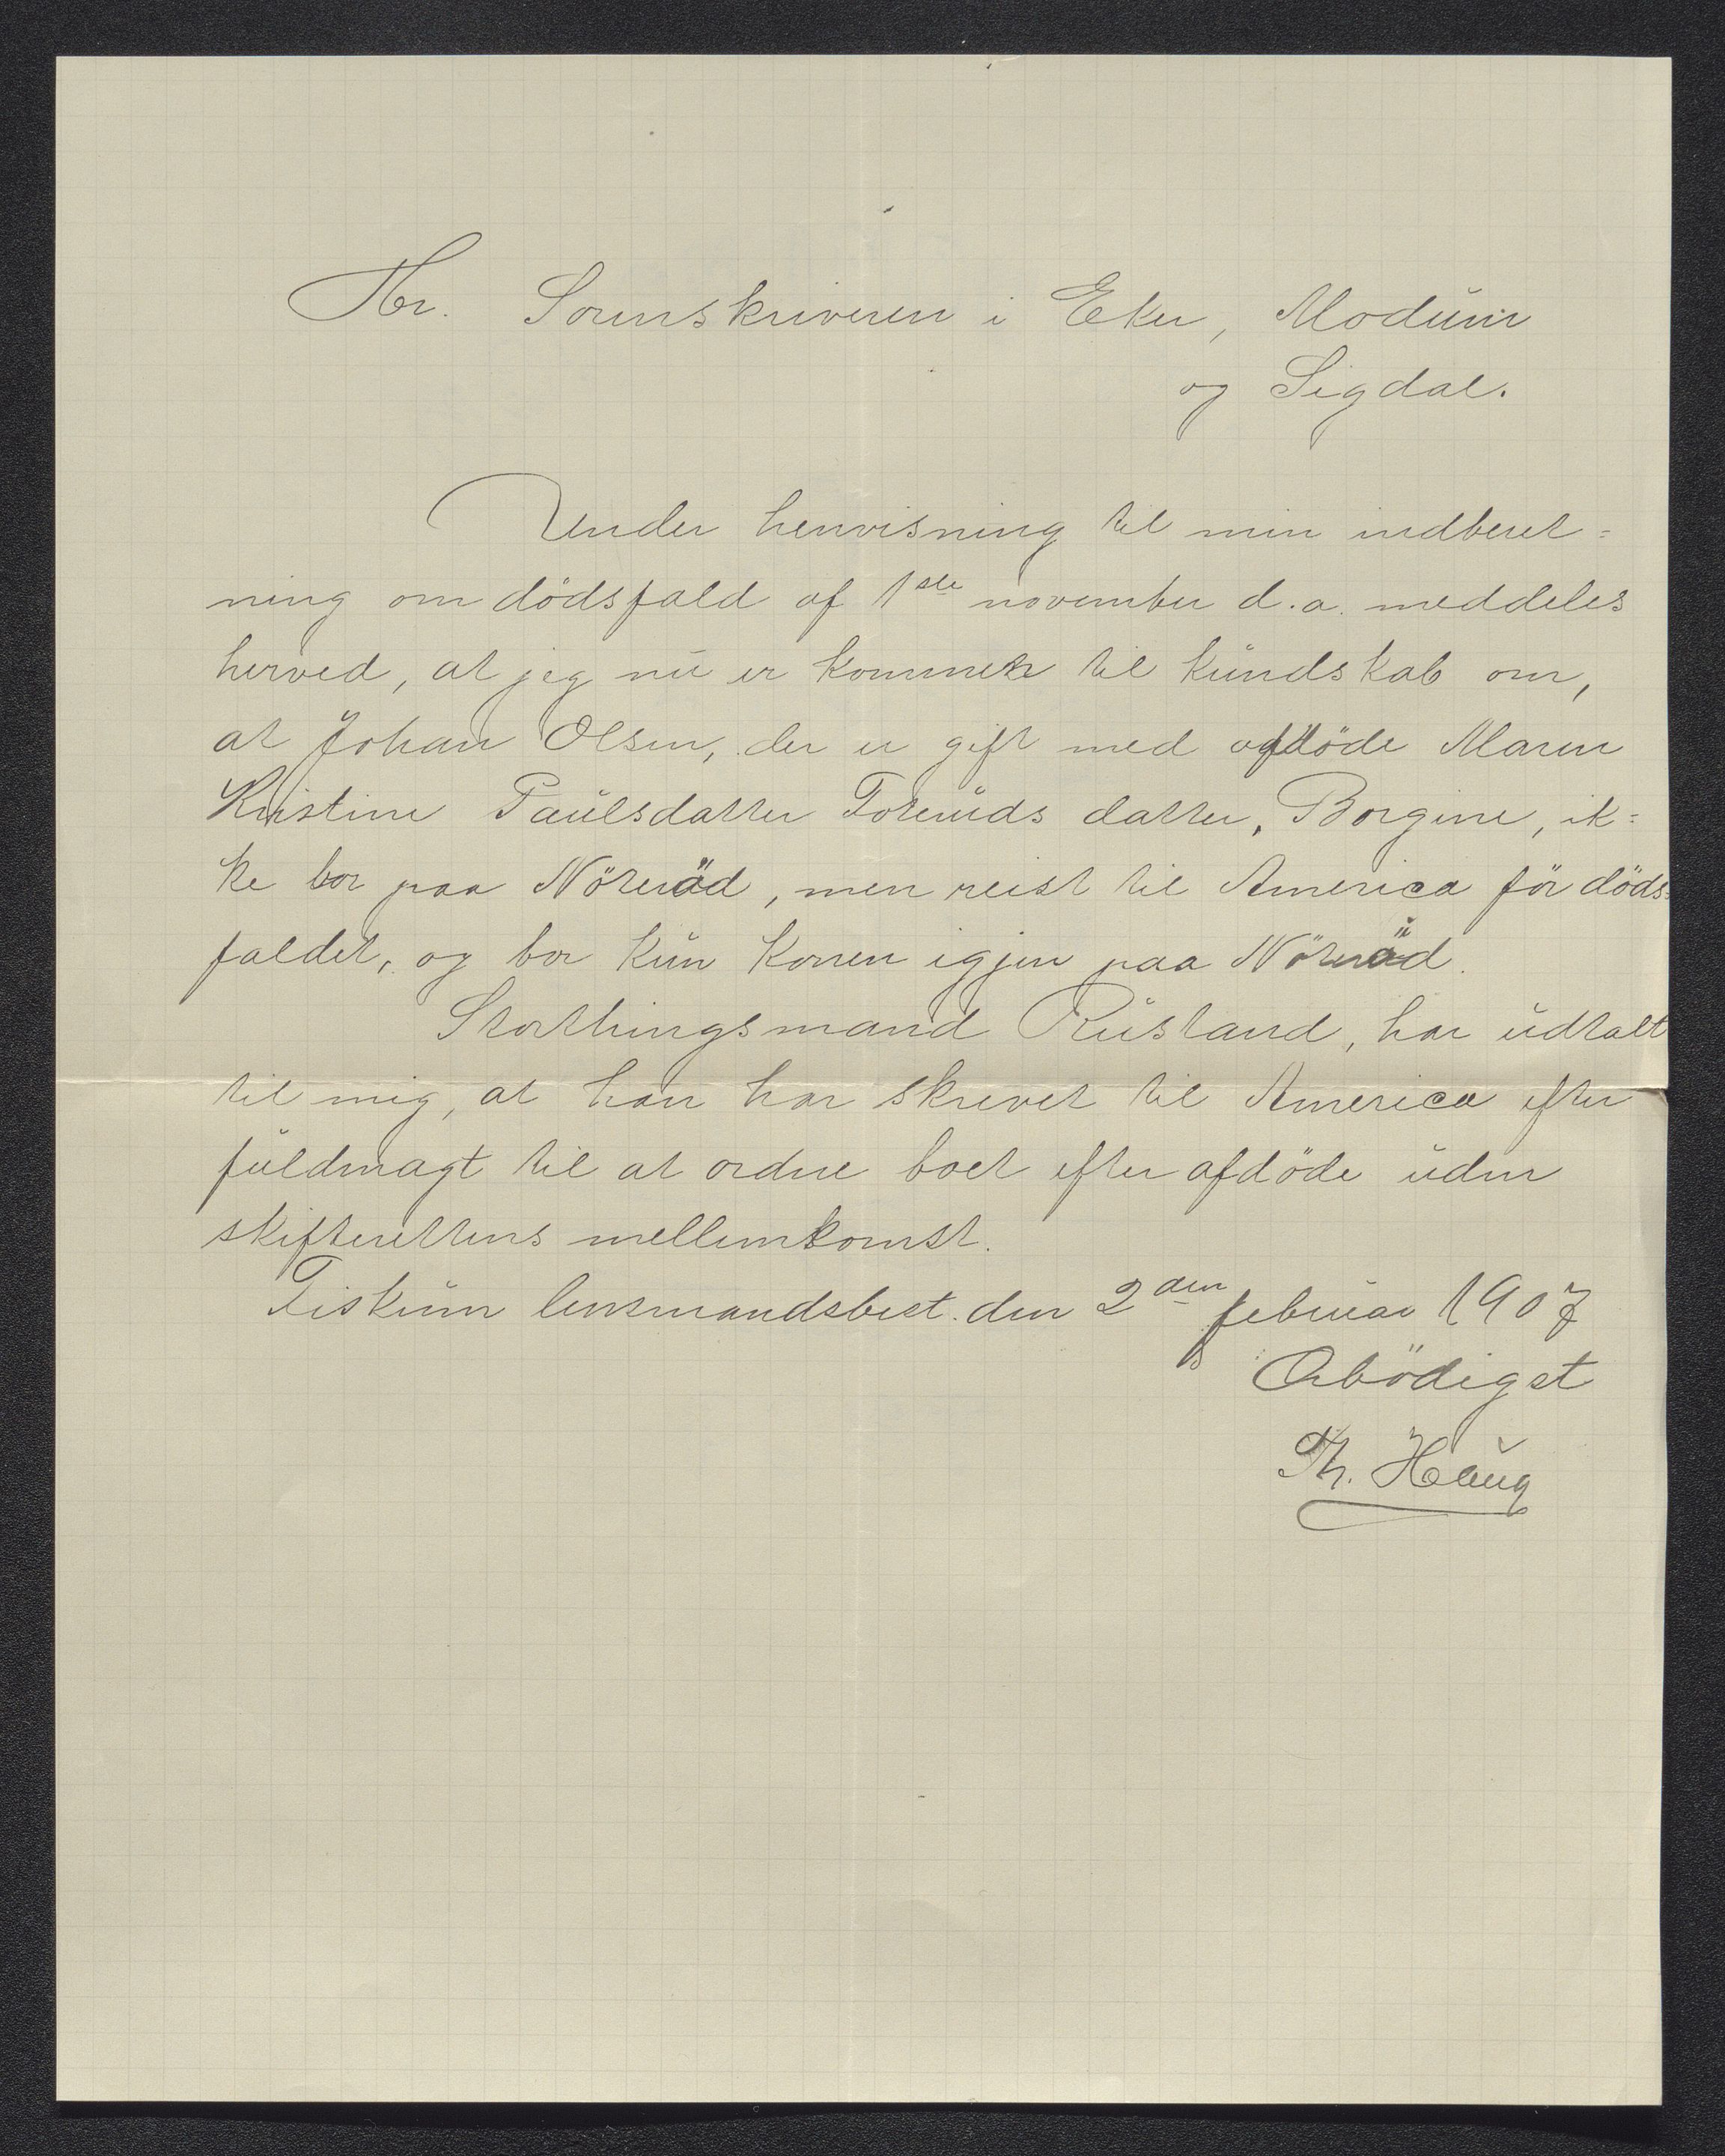 Hr. Sorenskriveren i Eker, Modum
og Sigdal.
Under henvisning til min indberet=
ning om dödsfald af 1ste november d.a. meddeles
herved, at jeg nu er kommen til kundskab om,
at Johan Olsen, der er gift med afdöde Maren
Kristine Paulsdatter Foteruds datter, Borgine, ik=
ke bor paa Nöteröd, men reist til America för döds=
faldet, og bor kun konen igjen paa Nöteröd.
Storthingsmand Rustand, har udtalt
til mig, at han har skrevet til America efter
fuldmagt til at ordne boet efter afdöde uden
skifterettens mellemkomst.
Fiskum lensmandsbest. den 2den februar 1907
Arbödigst
Th. Haug